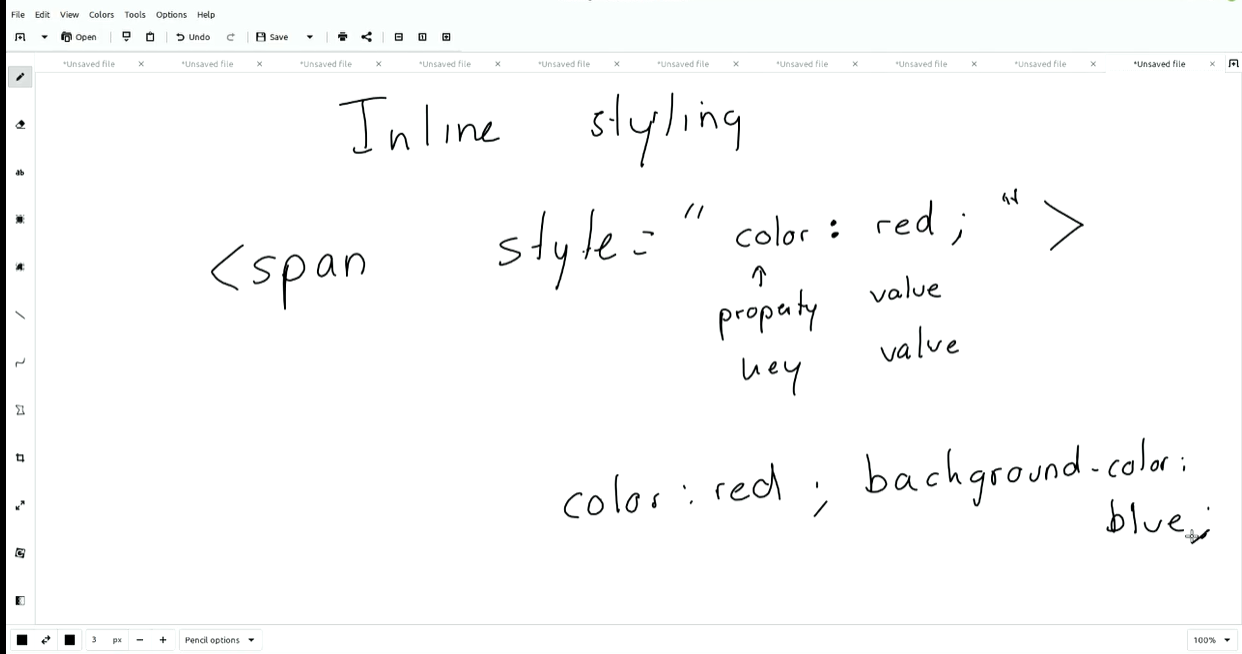 File Edit View Colors Tools Options Help
Open Undo Save
*Unsaved file *Unsaved file *Unsaved file *Unsaved file *Unsaved file *Unsaved file *Unsaved file *Unsaved file *Unsaved file *Unsaved file
Inline styling
<span style=" color: red; ">
↑
property value
key value
color: red; background-color:
blue;
3 px − + Pencil options 100%